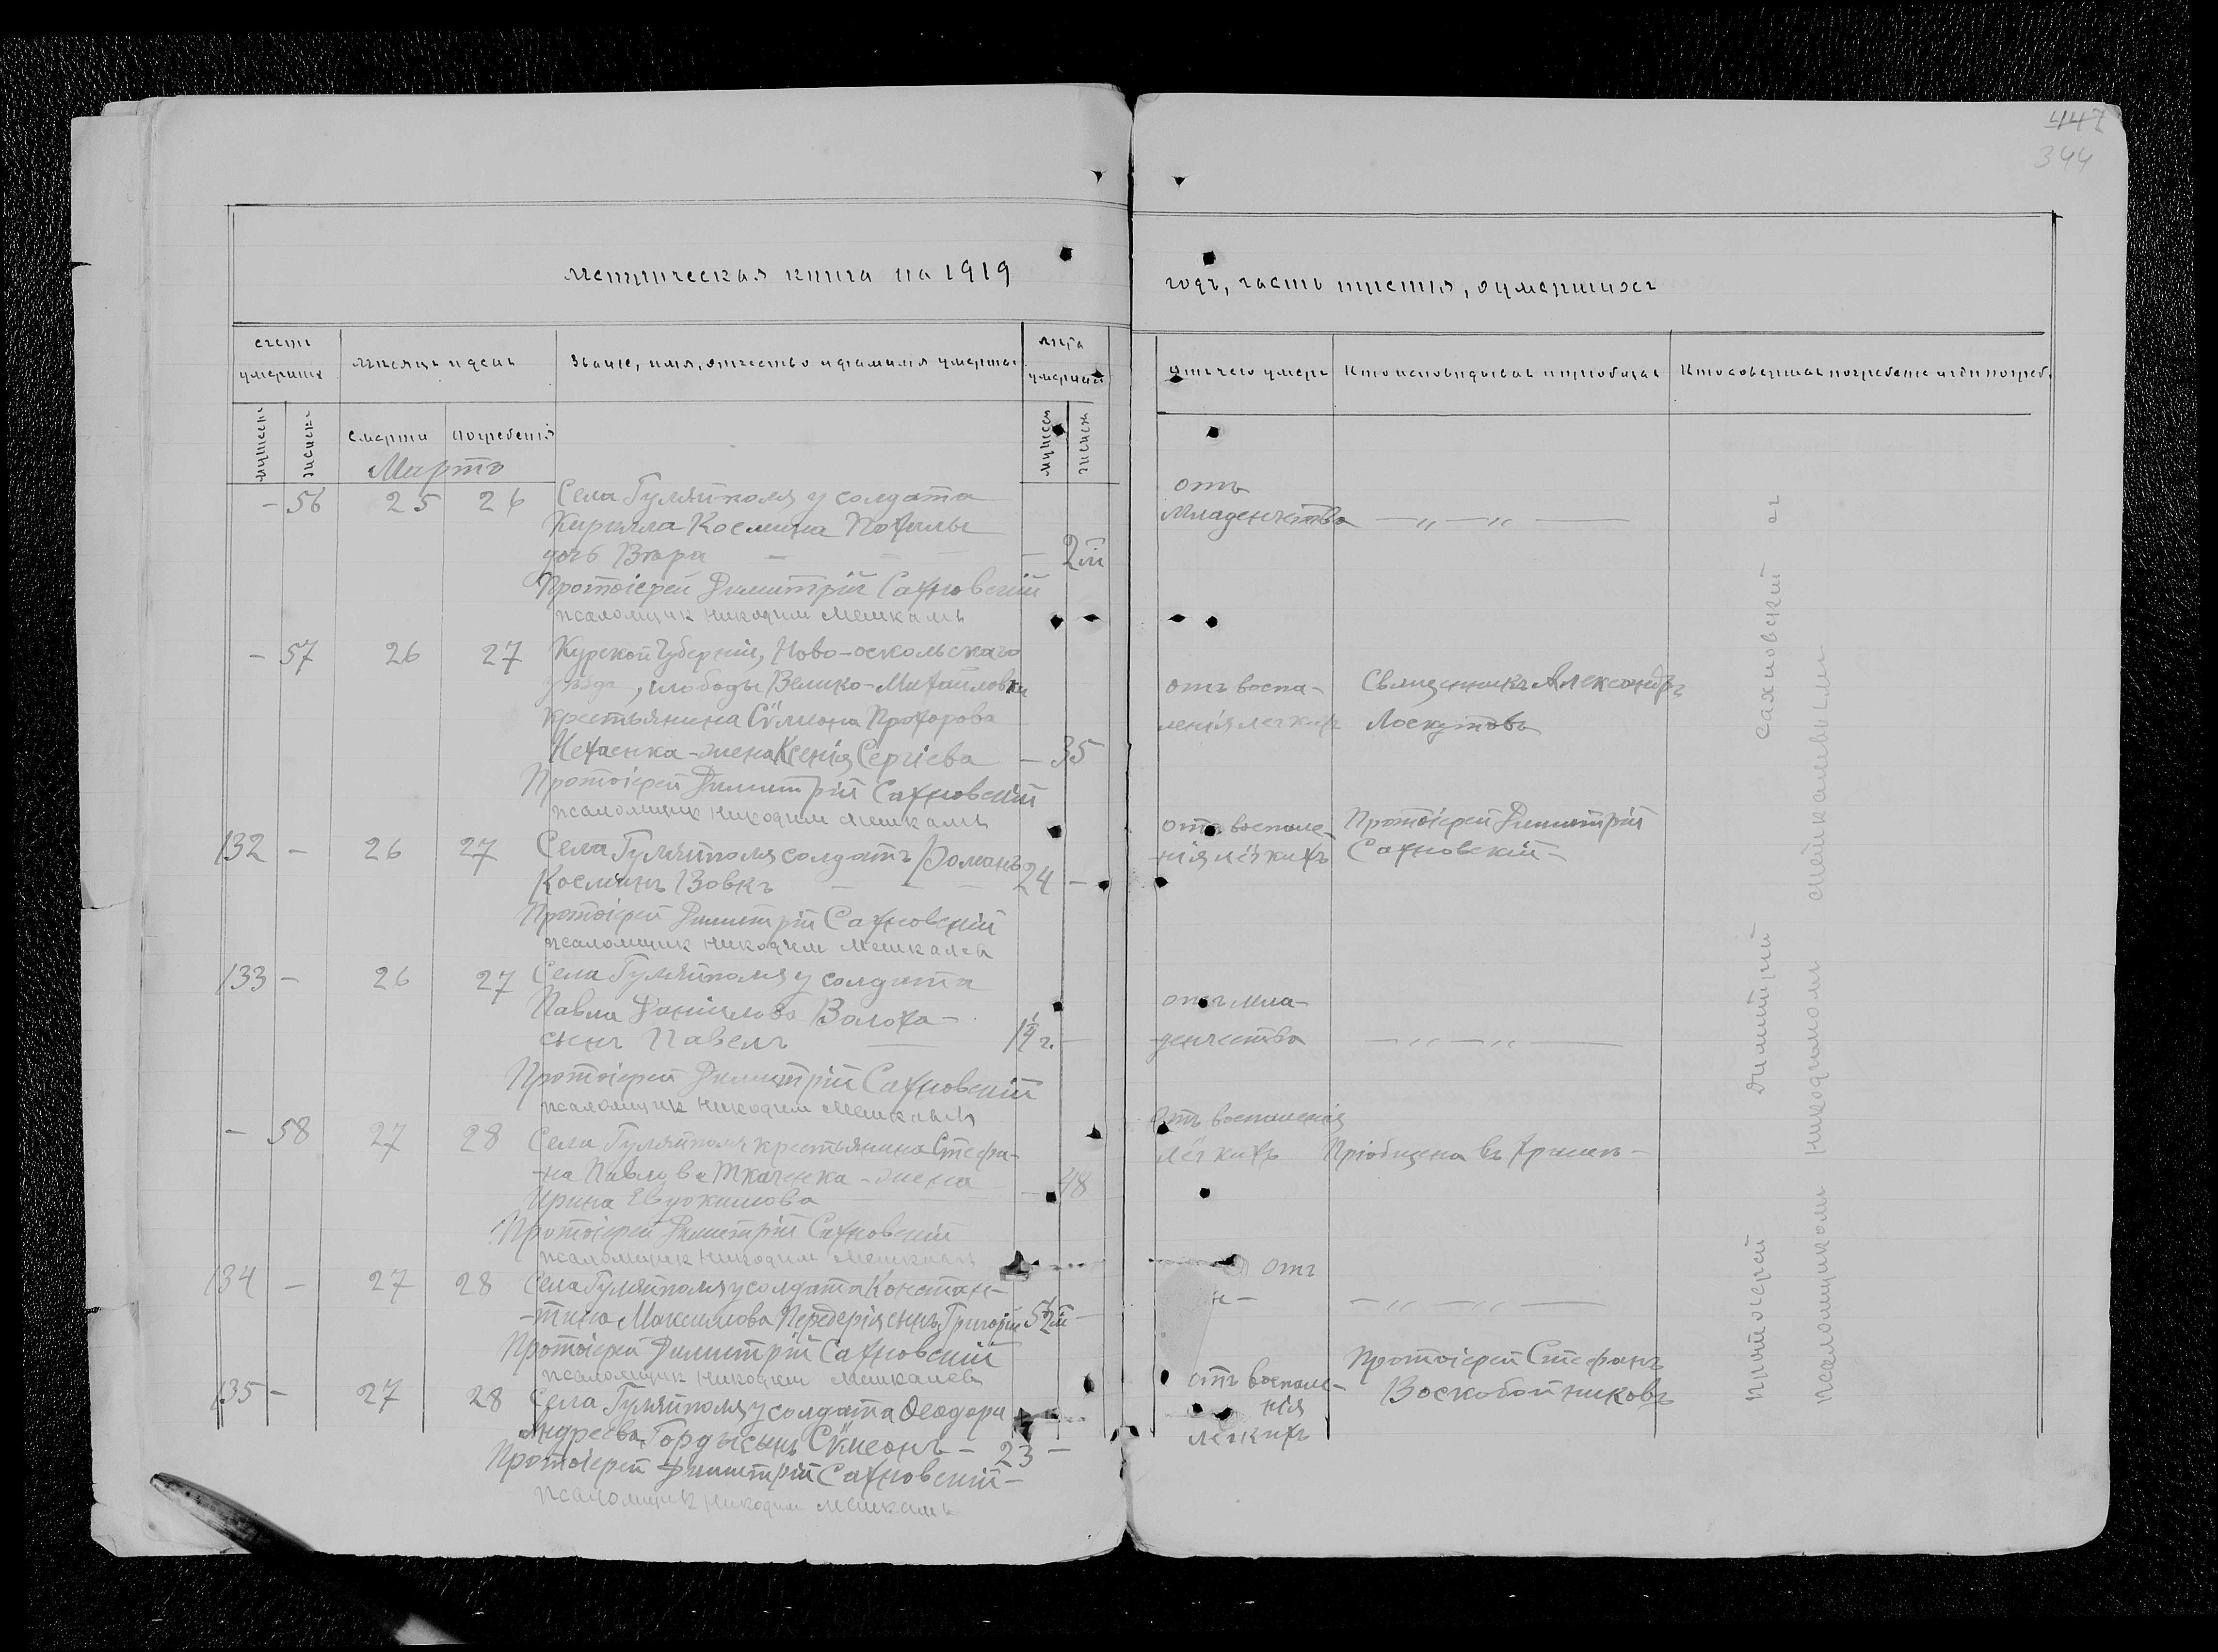 447
344
метрическая книга на 1919
годъ, часть третья, о умершихъ
счетъ умершихъ
мѣсяцъ и день
Званіе, имя, отчество и фамилія умершаго
лѣта умершаго
отъ чего умеръ
Кто исповѣдывалъ и пріобщалъ
Кто совершалъ погребеніе и гдѣ погреб.
мужеск
женск
смерти
погребенія
мужеск
женск
Мартъ
- 56 25 26 Села Гуляйполя у солдата
Кирилла Космина Похилы
дочь Вѣра - - -
- 2 м
Протоіерей Димитрій Сахновскій
псаломщик Никодим Мешкалевъ
отъ
младенчества — „ — „ —
- 57 26 27 Курской Губерніи, Ново-оскольскаго
уѣзда, слободы Велико-Михайловки
крестьянина Сѵмеона Прохорова
Нехаенка - жена Ксенія Сергіева - 35
Протоіерей Димитрій Сахновскій
псаломщик Никодим Мешкалевъ
отъ воспа-
ленія легкихъ
Священникъ Александръ
Лоскутовъ
132 - 26 27 Села Гуляйполя солдатъ Романъ
Косминъ Вовкъ - - - 24 -
Протоіерей Димитрій Сахновскій
псаломщик Никодим Мешкалевъ
отъ воспале-
нія лёгкихъ
Протоіерей Димитрій
Сахновскій -
133 - 26 27 Села Гуляйполя у солдата
Павла Даніилова Волоха -
сынъ Павелъ — 1 1/4 г. -
Протоіерей Димитрій Сахновскій
псаломщик Никодим Мешкалевъ
отъ мла-
денчества — „ — „ —
- 58 27 28 Села Гуляйполя крестьянина Стефа-
-на Павлова Ткаченка - жена
Ирина Евдокимова - 48
Протоіерей Димитрій Сахновскій
псаломщик Никодим Мешкалевъ
отъ воспаленія
лёгкихъ
Пріобщена въ храмѣ -
134 - 27 28 Села Гуляйполя у солдата Констан-
-тина Максимова Передерія сынъ Григорій 5 1/2 м -
Протоіерей Димитрій Сахновскій
псаломщик Никодим Мешкалевъ
отъ
н- — „ — „ —
135 - 27 28 Села Гуляйполя у солдата Ѳеодора
Андреева Горды сынъ Сѵмеонъ - 23 -
Протоіерей Димитрій Сахновскій -
псаломщик Никодим Мешкалевъ
отъ воспале-
нія
легкихъ
Протоіерей Стефанъ
Воскобойниковъ
протоіерей димитрій сахновскій съ
псаломщикомъ никодимомъ мешкалевымъ